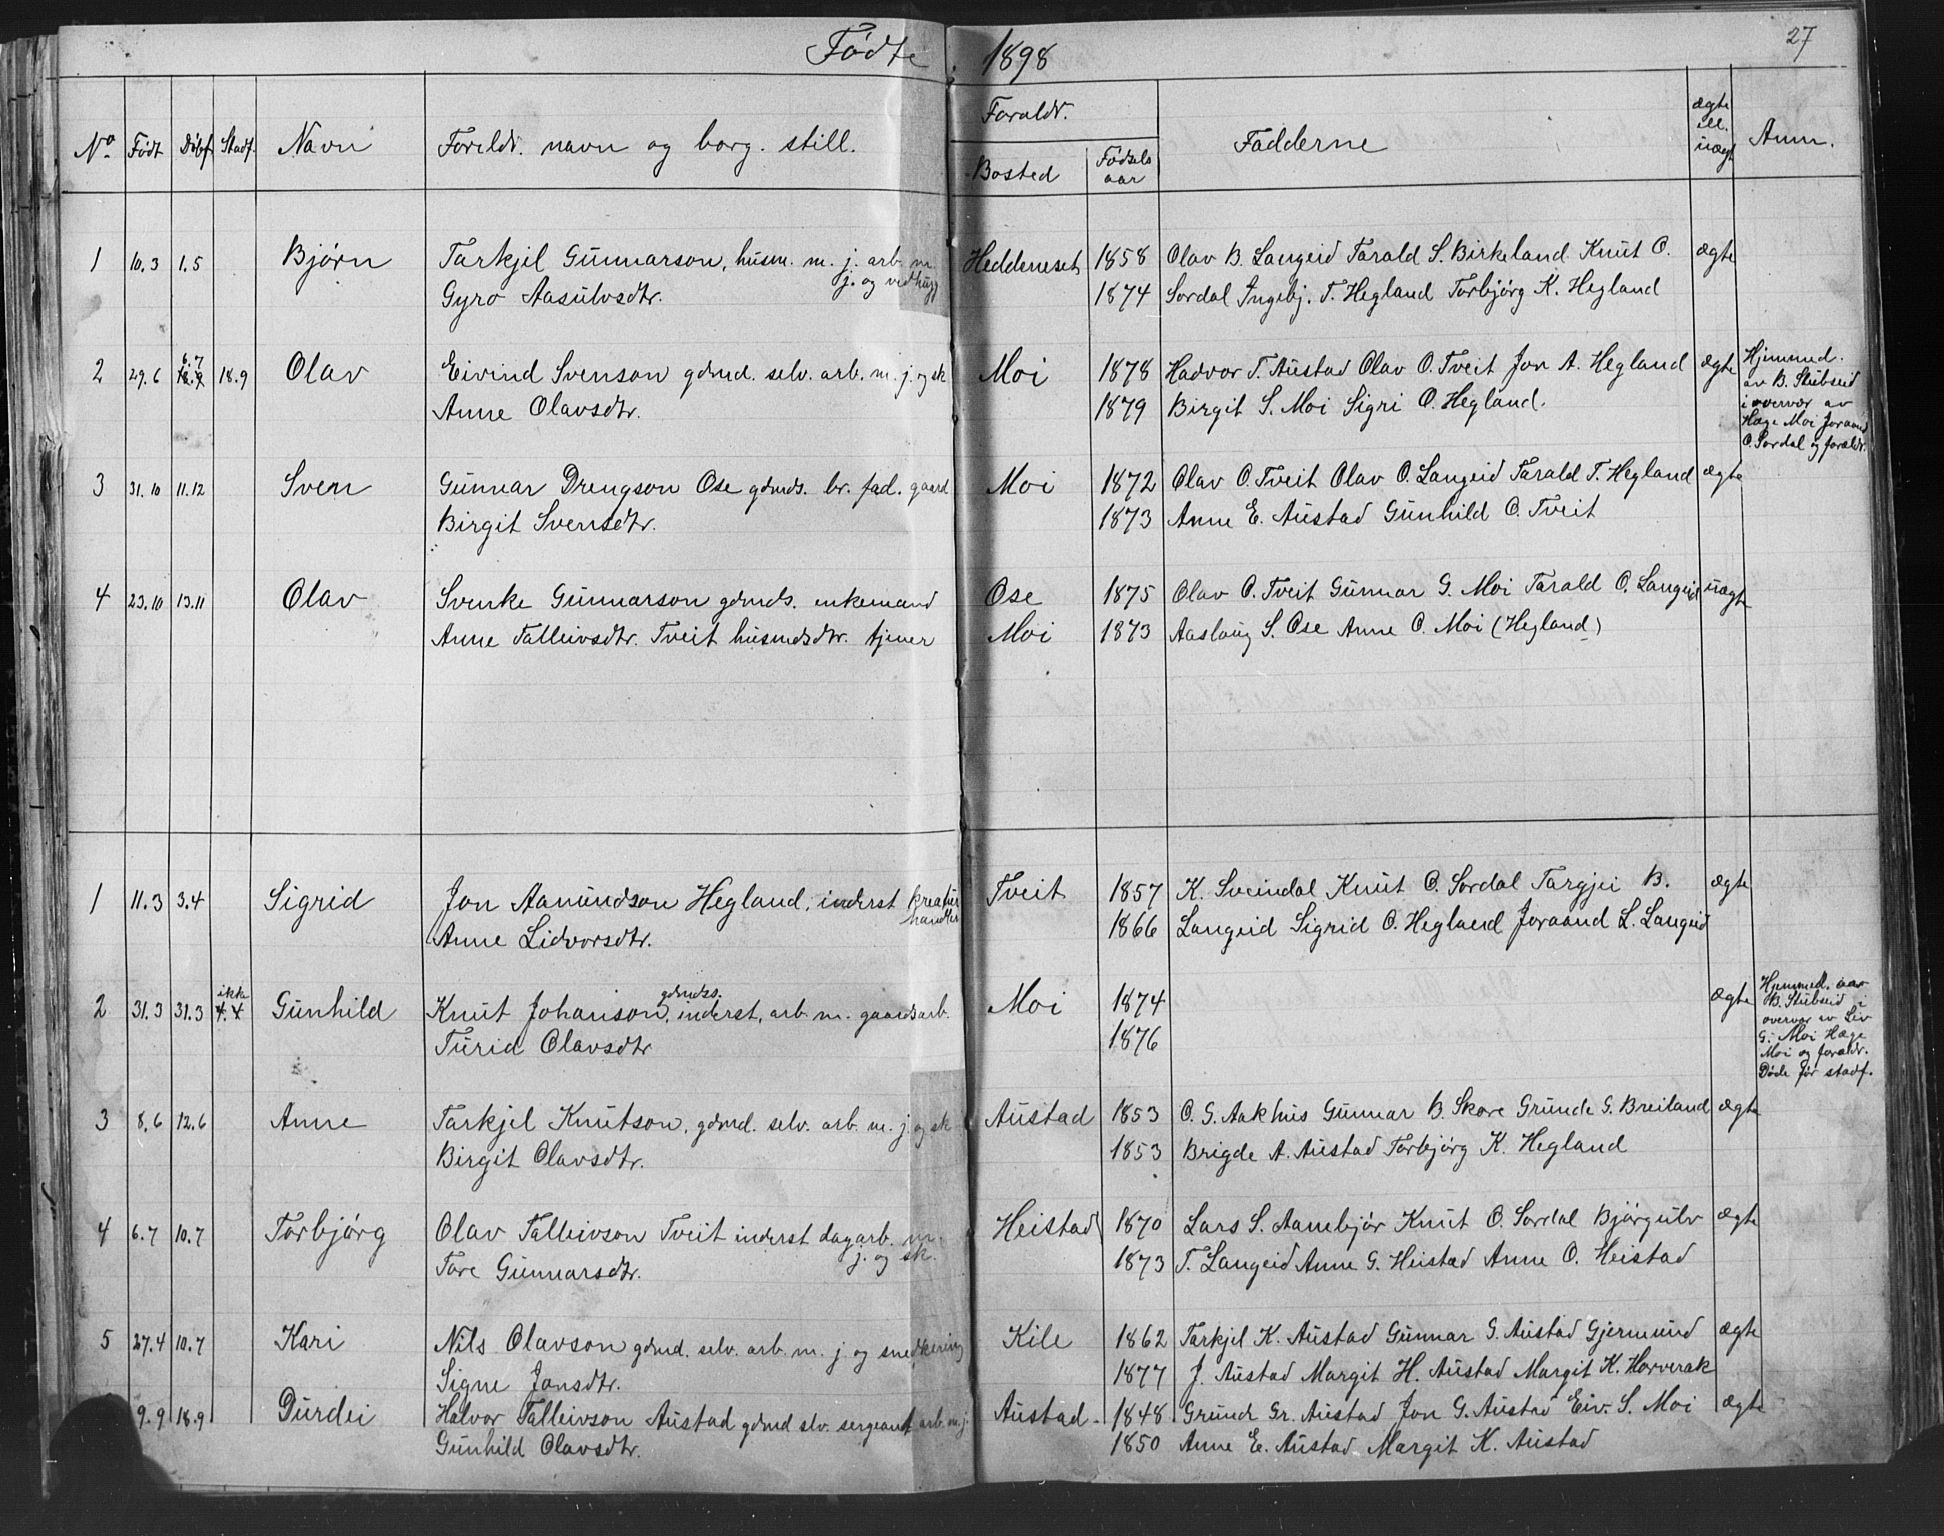 Fødte i 1898
27
No. Født Døbt Stadf. Navn Foreldr. navn og borg. still. Foraldr. Bosted Fødsels aar Fadderne ægte ell. uægt Anm.
1 10.3 1.5 Bjørn Tarkjel Gunnarson, husm. m. j. arb. m. Heddeneset 1858 Olav B. Langeid Tarald S. Birkeland Knut O. ægte
j. og vedhugg
Gyro Aasulvsdtr. 1874 Sordal Ingebj. T. Hegland Torbjørg K. Hegland
2 29.6 6.7 18.9 Olav Eivind Svenson gdmd. selv. arb. m. j. og sk Moi 1878 Hadvor T. Austad Olav O. Tveit Jon A. Hegland ægte
Anne Olavsdtr. 1879 Birgit S. Moi Sigri O. Hegland.
Hjemmed.
av B. Stubseid
i overvær av
Hæge Moi Joraand
O. Sordal og forældr.
3 31.10 11.12 Sven Gunnar Drengson Ose gdmds. br. fad. gaard Moi 1872 Olav O. Tveit Olav O. Langeid Tarald T. Hegland ægte
Birgit Svensdtr. 1873 Anne E. Austad Gunhild O. Tveit
4 23.10 13.11 Olav Svenke Gunnarson gdmds. enkemand Ose 1875 Olav O. Tveit Gunnar G. Moi Tarald O. Langeid uægte
Anne Talleivsdtr. Tveit husmdsdtr. tjener Moi 1873 Aaslaug S. Ose Anne O. Moi (Hegland)
1 11.3 3.4 Sigrid Jon Aamundson Hegland, inderst kreatur Tveit 1857 K. Sveindal Knut O. Sordal Targjei B. ægte
handler
Anne Lidvorsdtr. 1866 Langeid Sigrid O. Hegland Joraand L. Langeid
2 31.3 31.3 ikke 4.4 Gunhild Knut Johanson, gdmds. inderst, arb. m. gaardsarb. Moi 1874 ægte
Turid Olavsdtr 1876
Hjemmed. av
B. Stubseid i
overvær av Liv
G. Moi Hæge
Moi og forældr.
Døde før stadf.
3 8.6 12.6 Anne Tarkjel Knutson, gdmd. selv. arb. m. j. og sk Austad 1853 O. G. Aakhus Gunnar B. Skore Grunde G. Breiland ægte
Birgit Olavsdtr. 1853 Brigde A. Austad Torbjørg K. Hegland
4 6.7 10.7 Torbjørg Olav Talleivson Tveit inderst dagarb. m. Heistad 1870 Lars S. Aamebjør Knut O. Sordal Bjørgulv ægte
j. og sk.
Tore Gunnarsdtr. 1873 T. Langeid Anne G. Heistad Anne O. Heistad
5 27.4 10.7 Kari Nils Olavson gdmd. selv. arb. m. j. og snedkering Kile 1862 Tarkjel K. Austad Gunnar G. Austad Gjermund ægte
Signe Jonsdtr. 1877 J. Austad Margit H. Austad Margit K. Horverak
9.9 18.9 Durdei Halvor Talleivson Austad gdmd slv. sergeant arb. m. j. Austad 1848 Grunde Gr. Austad Jon G. Austad Eiv. S. Moi ægte
Gunhild Olavsdtr. 1850 Anne E. Austad Margit K. Austad